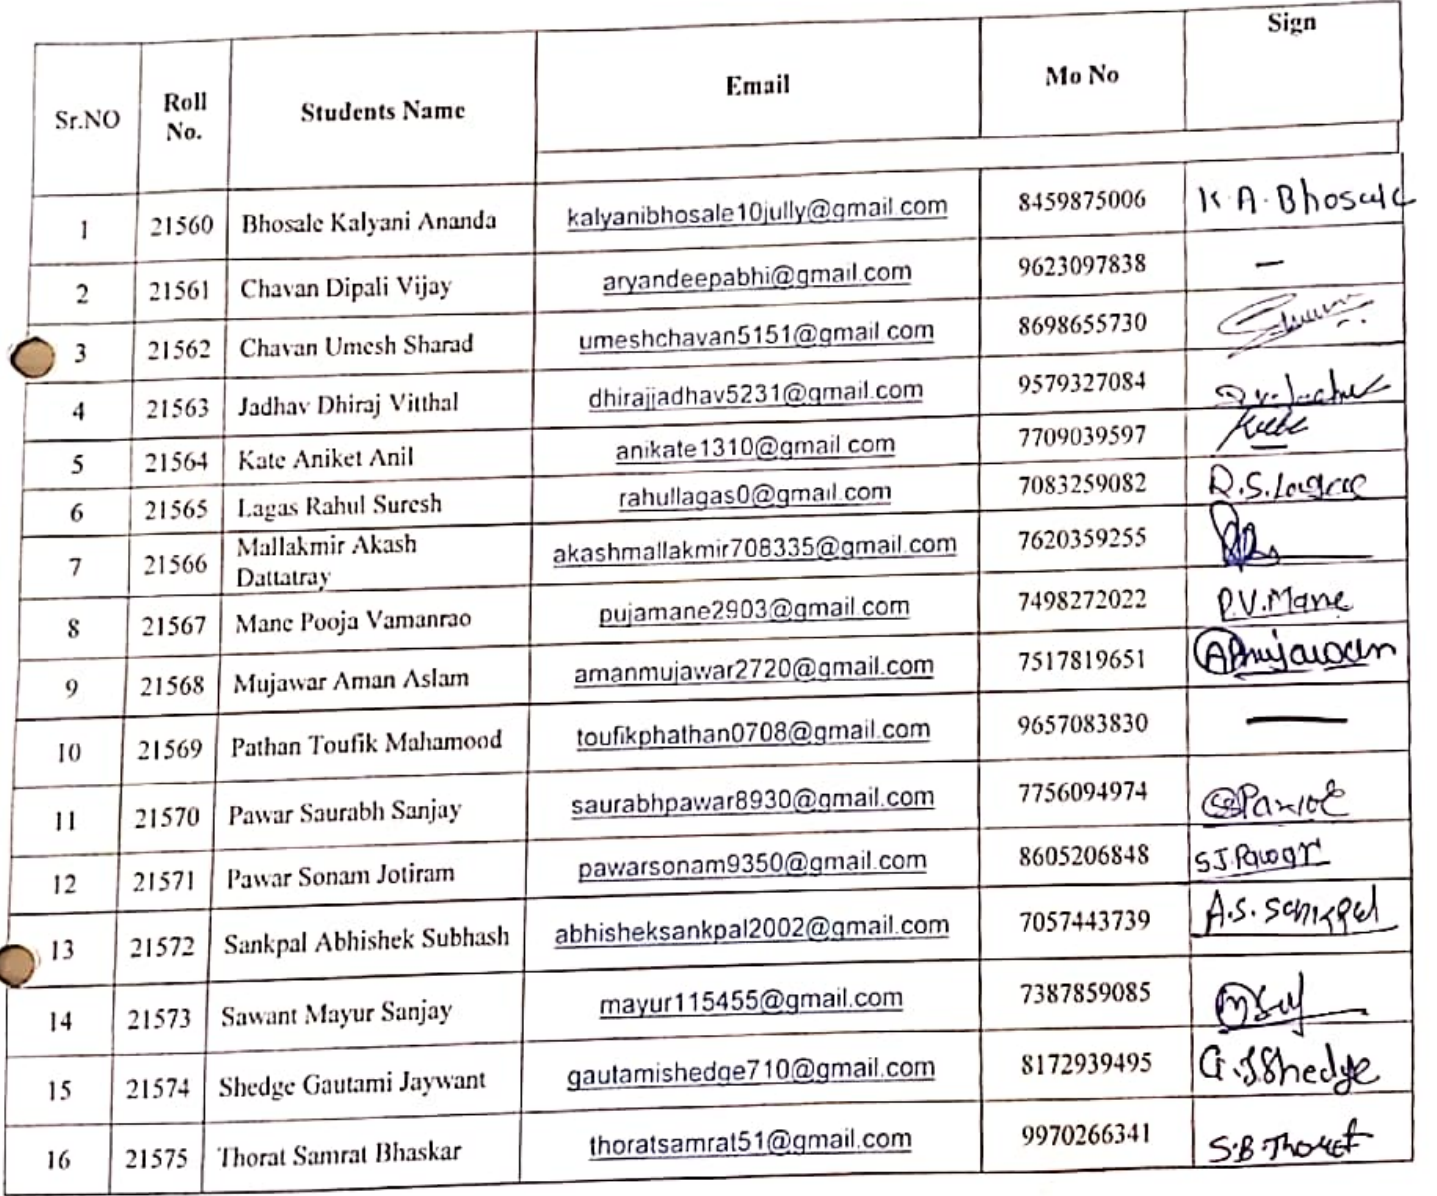 Sr.NO Roll No. Students Name Email Mo No Sign
1 21560 Bhosale Kalyani Ananda kalyanibhosale10jully@gmail.com 8459875006 K.A.Bhosale
2 21561 Chavan Dipali Vijay aryandeepabhi@gmail.com 9623097838 —
3 21562 Chavan Umesh Sharad umeshchavan5151@gmail.com 8698655730
4 21563 Jadhav Dhiraj Vitthal dhirajjadhav5231@gmail.com 9579327084
5 21564 Kate Aniket Anil anikate1310@gmail.com 7709039597
6 21565 Lagas Rahul Suresh rahullagas0@gmail.com 7083259082
7 21566 Mallakmir Akash Dattatray akashmallakmir708335@gmail.com 7620359255
8 21567 Mane Pooja Vamanrao pujamane2903@gmail.com 7498272022 P.V.Mane
9 21568 Mujawar Aman Aslam amanmujawar2720@gmail.com 7517819651
10 21569 Pathan Toufik Mahamood toufikphathan0708@gmail.com 9657083830 —
11 21570 Pawar Saurabh Sanjay saurabhpawar8930@gmail.com 7756094974
12 21571 Pawar Sonam Jotiram pawarsonam9350@gmail.com 8605206848 S.J.Pawar
13 21572 Sankpal Abhishek Subhash abhisheksankpal2002@gmail.com 7057443739 A.S.Sankpal
14 21573 Sawant Mayur Sanjay mayur115455@gmail.com 7387859085
15 21574 Shedge Gautami Jaywant gautamishedge710@gmail.com 8172939495 G.J.Shedge
16 21575 Thorat Samrat Bhaskar thoratsamrat51@gmail.com 9970266341 S.B.Thorat